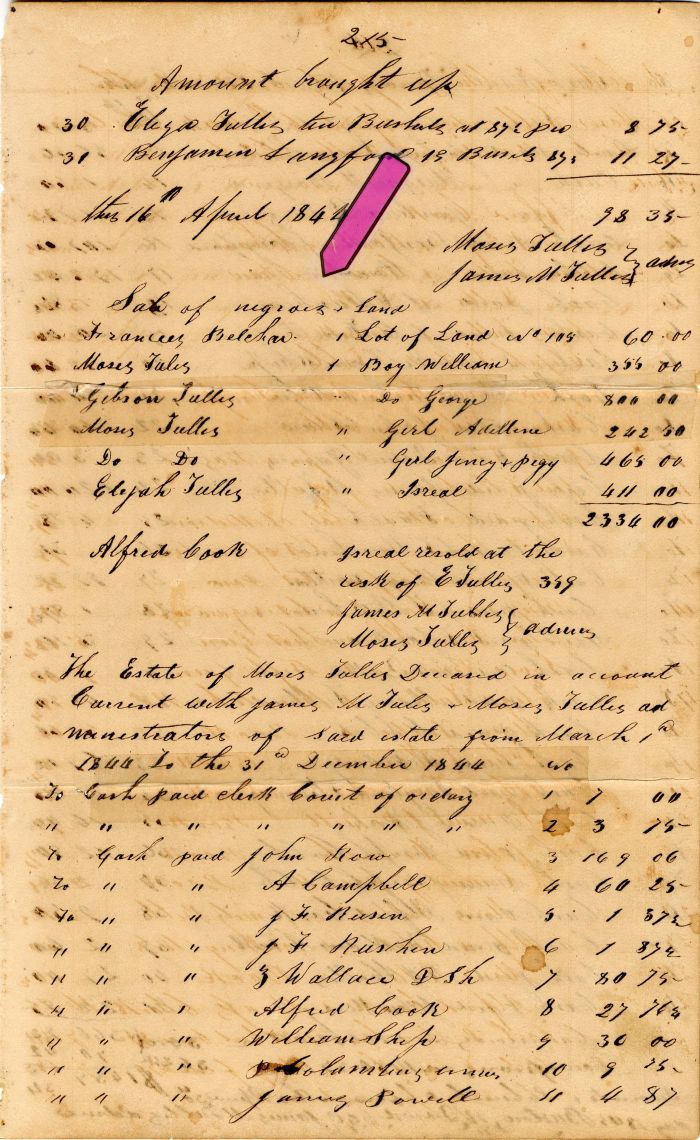 215
Amount brought up
30 Elija Tulley ten Bushels at 87½ pco 8 75
31 Benjamin Langford 15 Busels 87½ 11 27
this 16th April 1844 98 35
Moses Tulley
James M Tulley } admrs
Sale of negroes + Land
Frances Belchar 1 Lot of Land No 108 60 00
Moses Tuley 1 Boy William 355 00
Gibson Tulley " Do George 800 00
Moses Tulley " Gerl Adelline 242 50
Do Do " Gerl Jincy + Pegy 465 00
Elijah Tulley " Isreal 411 00
2334 00
Alfred Cook Isreal resold at the
risk of E Tulley 359
James M Tulley
Moses Tulley } admrs
The Estate of Moses Tulley Deceased in account
Current with James M Tuley + Moses Tulley ad
ministrators of said estate from March 1st
1844 To the 31st December 1844 No
To Cash paid clerk Court of ordary 1 7 00
" " " " " " " 2 3 75
To Cash paid John Row 3 169 06
To " " A Campbell 4 60 25
To " " J F Rusin 5 1 87½
" " " J F Rushin 6 1 87½
" " " Wallace D Sh 7 80 75
" " " Alfred Cook 8 27 76½
" " " William Ship 9 30 00
" " " Columbus 10 9 75
" " " James Powell 11 4 87